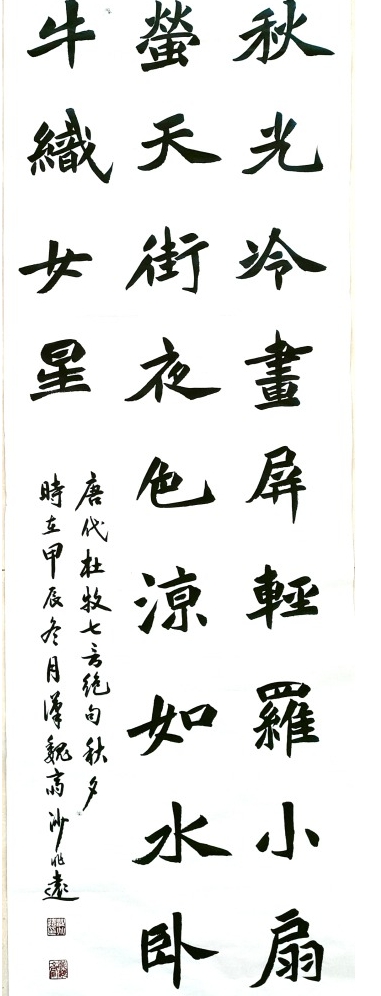 秋光冷畫屏輕羅小扇
螢天街夜色涼如水卧
牛織女星
唐代杜牧七言絕句秋夕
時在甲辰冬月漢魏沙遠